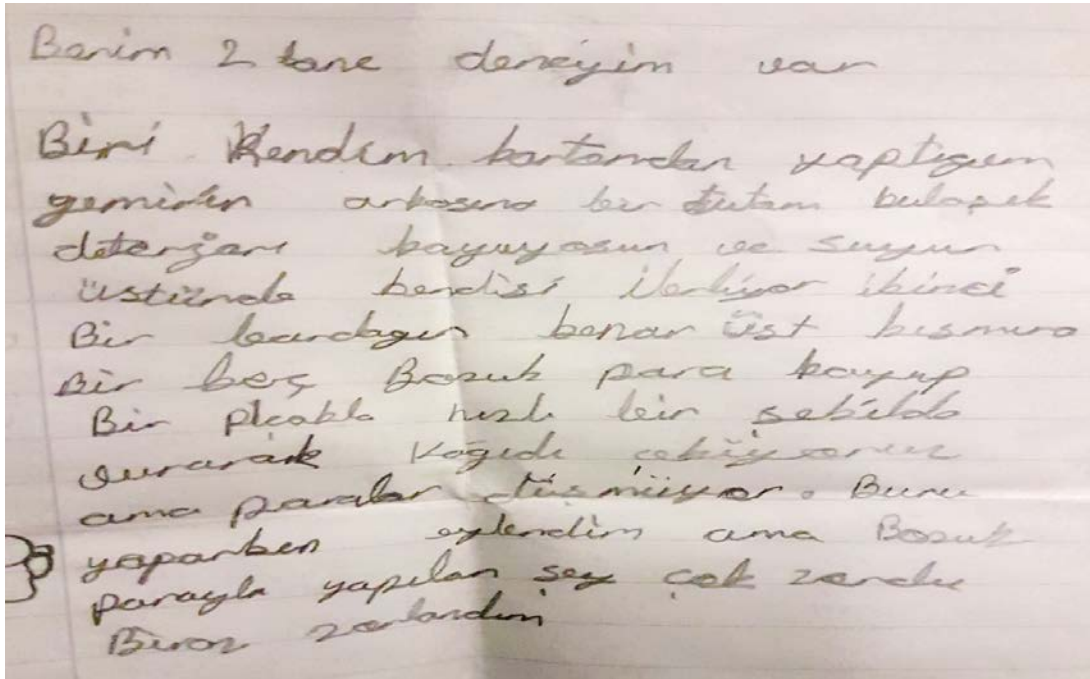 Benim 2 tane deneyim var
Biri Kendim kartondan yaptığım
geminin arkasına bir tutam bulaşık
deterjanı koyuyosun ve suyun
üstünde kendisi ilerliyor ikinci
Bir bardağın kenar üst kısmına
Bir beş Bozuk para koyup
Bir plcakla hızlı bir şekilde
vurarak Kağıdı çekiyoruz
ama paralar düşmüyor. Bunu
yaparken eylendim ama Bozuk
parayla yapılan şey çok zordu
Biraz zorlandım